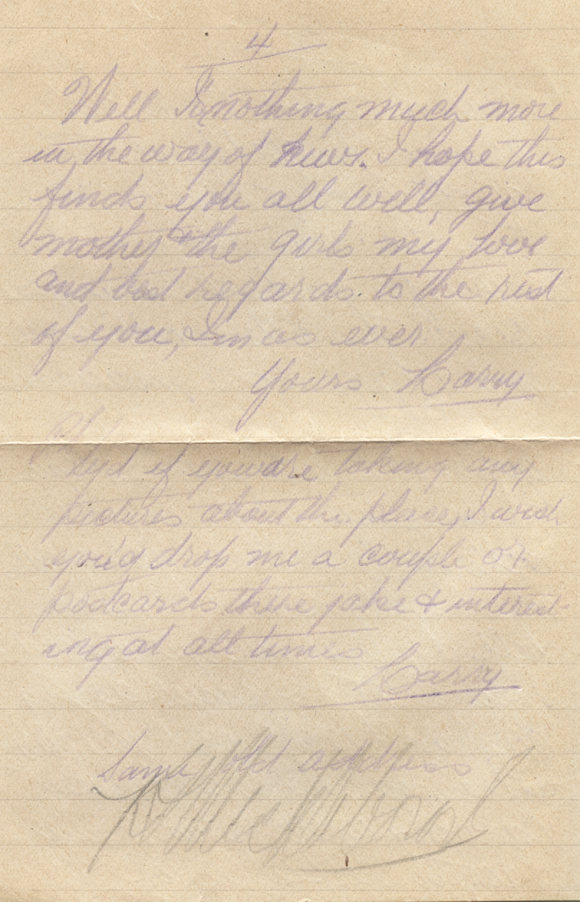 4
Well nothing much more
in the way of news. I hope this
finds you all well, give
mother & the girls my love
and best regards to the rest
of you, Im as ever
Yours Harry
Syd if you are taking any
pictures about the place, I wish
you'd drop me a couple of
postcards there jake & interest-
ing at all times
Harry
Same old address